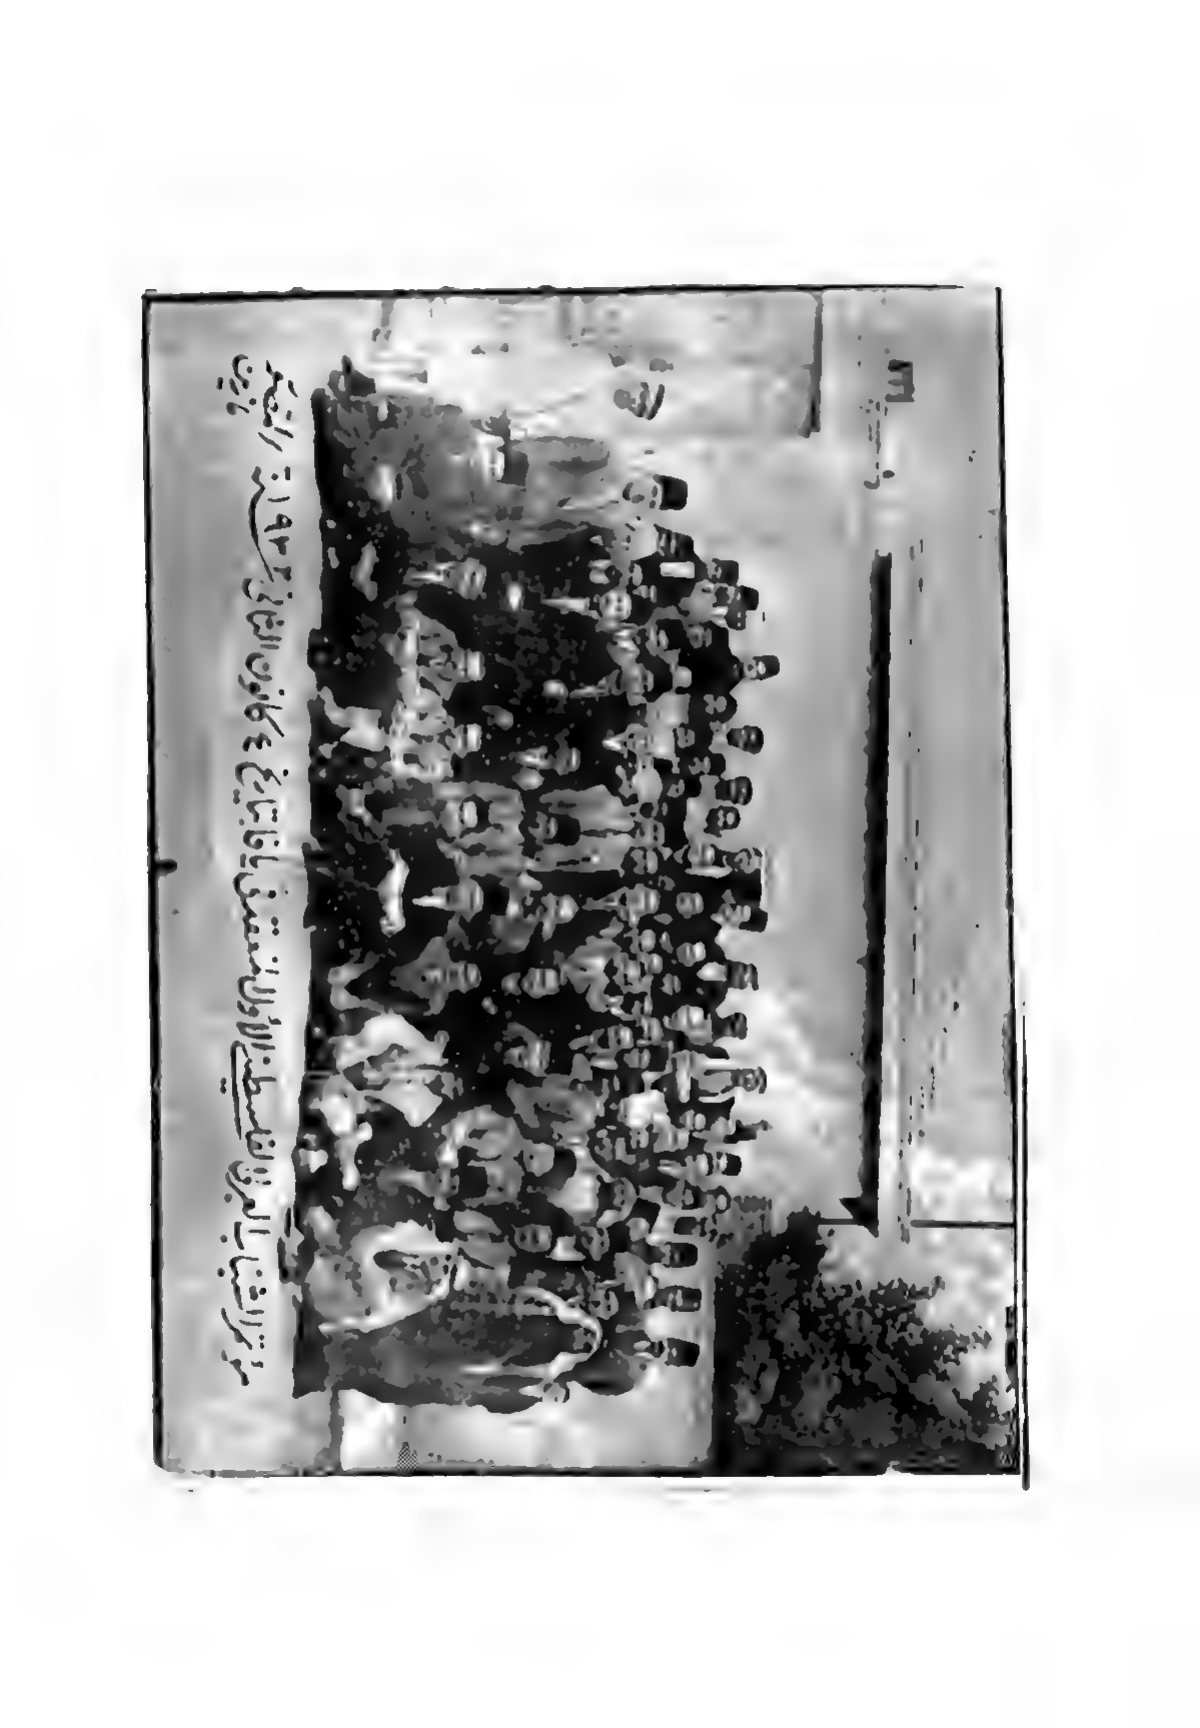 مؤتمر الشباب العربي الفلسطيني الاول المنعقد في يافا بتاريخ ٤ كانون الثاني